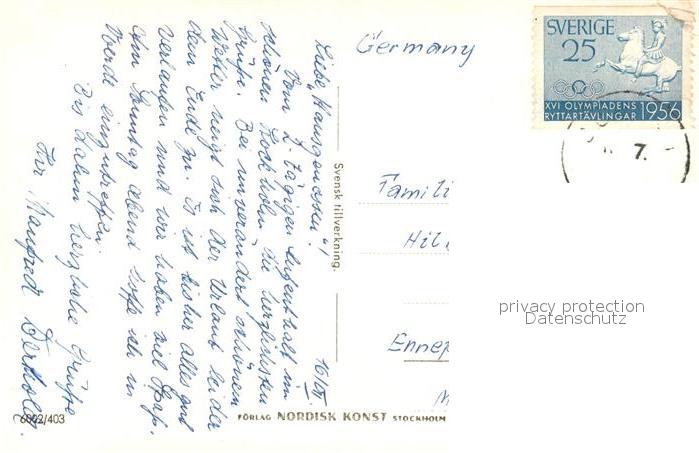 Germany
SVERIGE
25
XVI OLYMPIADENS
RYTTARTÄVLINGAR 1956
7.
16/VII
Liebe "Hausgenossen"!
Vom 2-tägigen Aufenthalt im
schönen Stockholm die herzlichsten
Grüße. Bei unverändert schönem
Wetter neigt sich der Urlaub leider
dem Ende zu. Es ist bisher alles gut
verlaufen und wir haben viel Spaß.
Am Sonntag abend hoffe ich in
Werde einzutreffen.
Bis dahin herzliche Grüße
Ihr Manfred
Svensk tillverkning.
Famili
Hil
Ennep
6002/403
FÖRLAG NORDISK KONST STOCKHOLM
privacy protection
Datenschutz